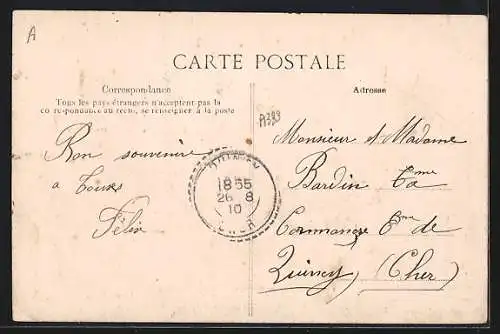 A
CARTE POSTALE
Correspondance
Tous les pays étrangers n'acceptent pas la
correspondance au recto, se renseigner à la poste
Adresse
A389
Bon souvenire
a tous
Félix
QUINCY
18 55
26 8
10
CHER
Monsieur & Madame
Bardin
Commange de
Quincy (Cher)